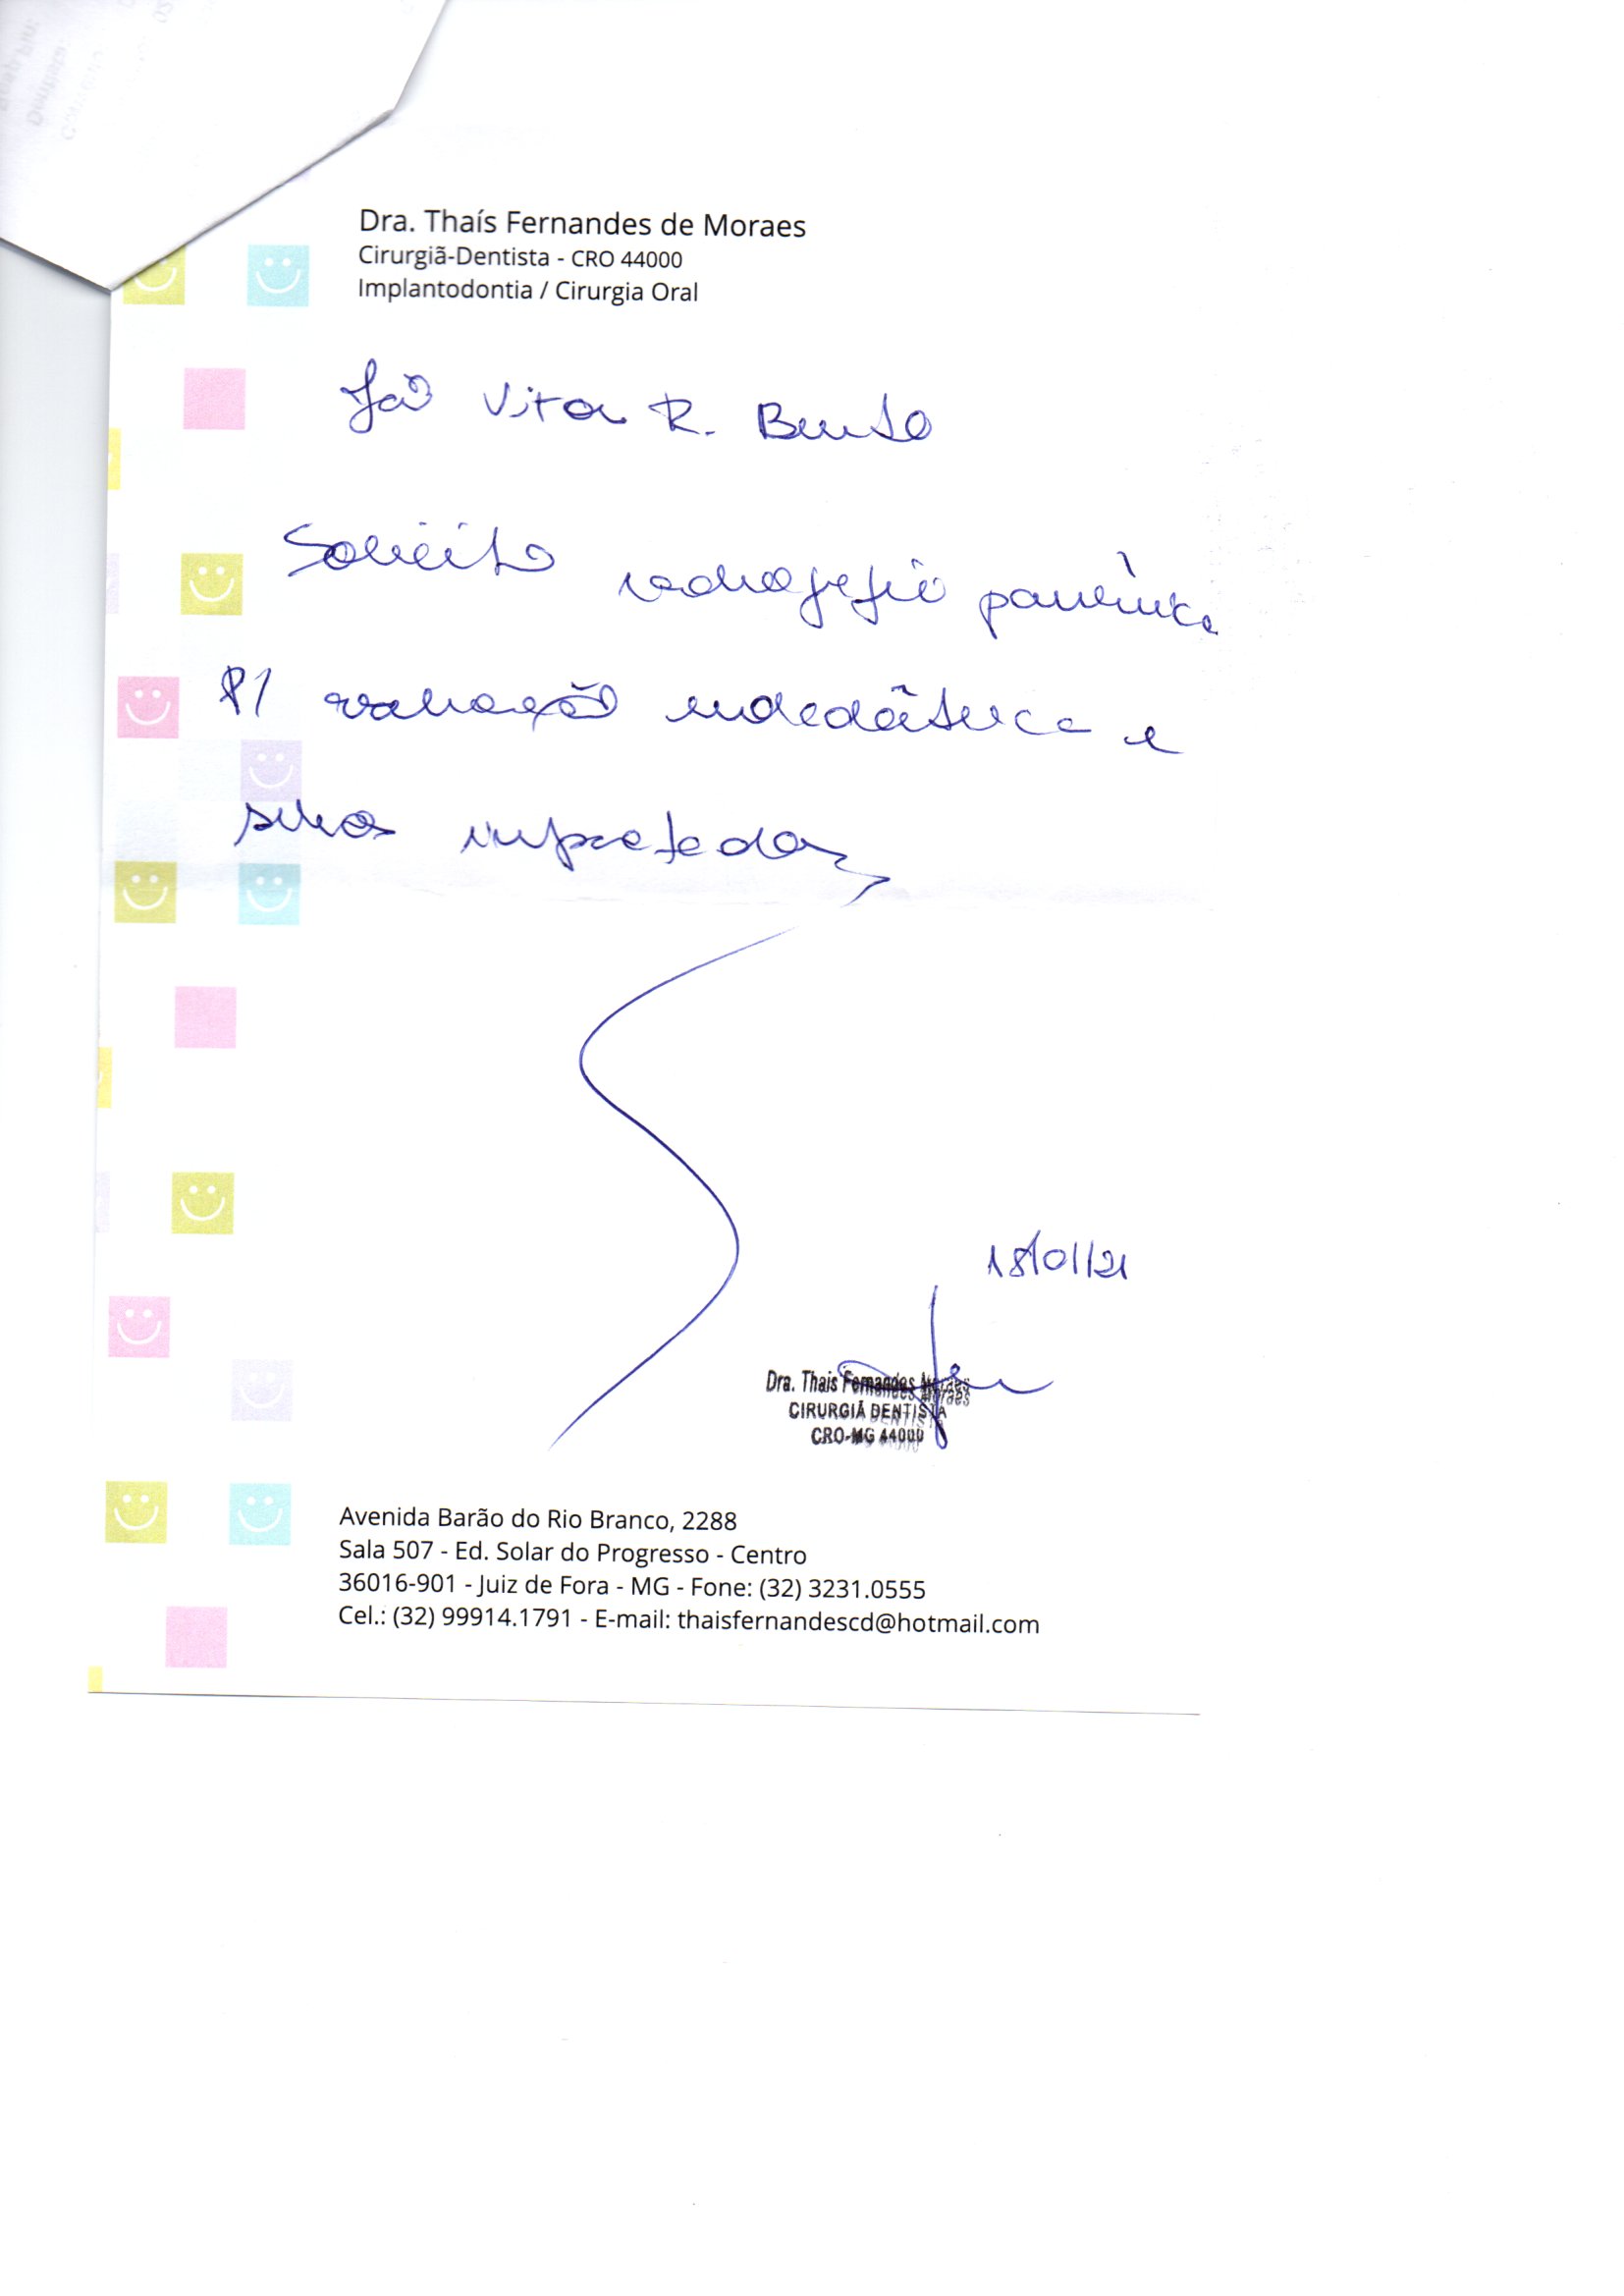 Dra. Thaís Fernandes de Moraes
Cirurgiã-Dentista - CRO 44000
Implantodontia / Cirurgia Oral
João Vitor R. Bento
Solicito radiografia panorâmica
P/ avaliação e
impactados
18/01/21
Dra. Thais Fernandes Moraes
CIRURGIÃ DENTISTA
CRO-MG 44000
Avenida Barão do Rio Branco, 2288
Sala 507 - Ed. Solar do Progresso - Centro
36016-901 - Juiz de Fora - MG - Fone: (32) 3231.0555
Cel.: (32) 99914.1791 - E-mail: thaisfernandescd@hotmail.com